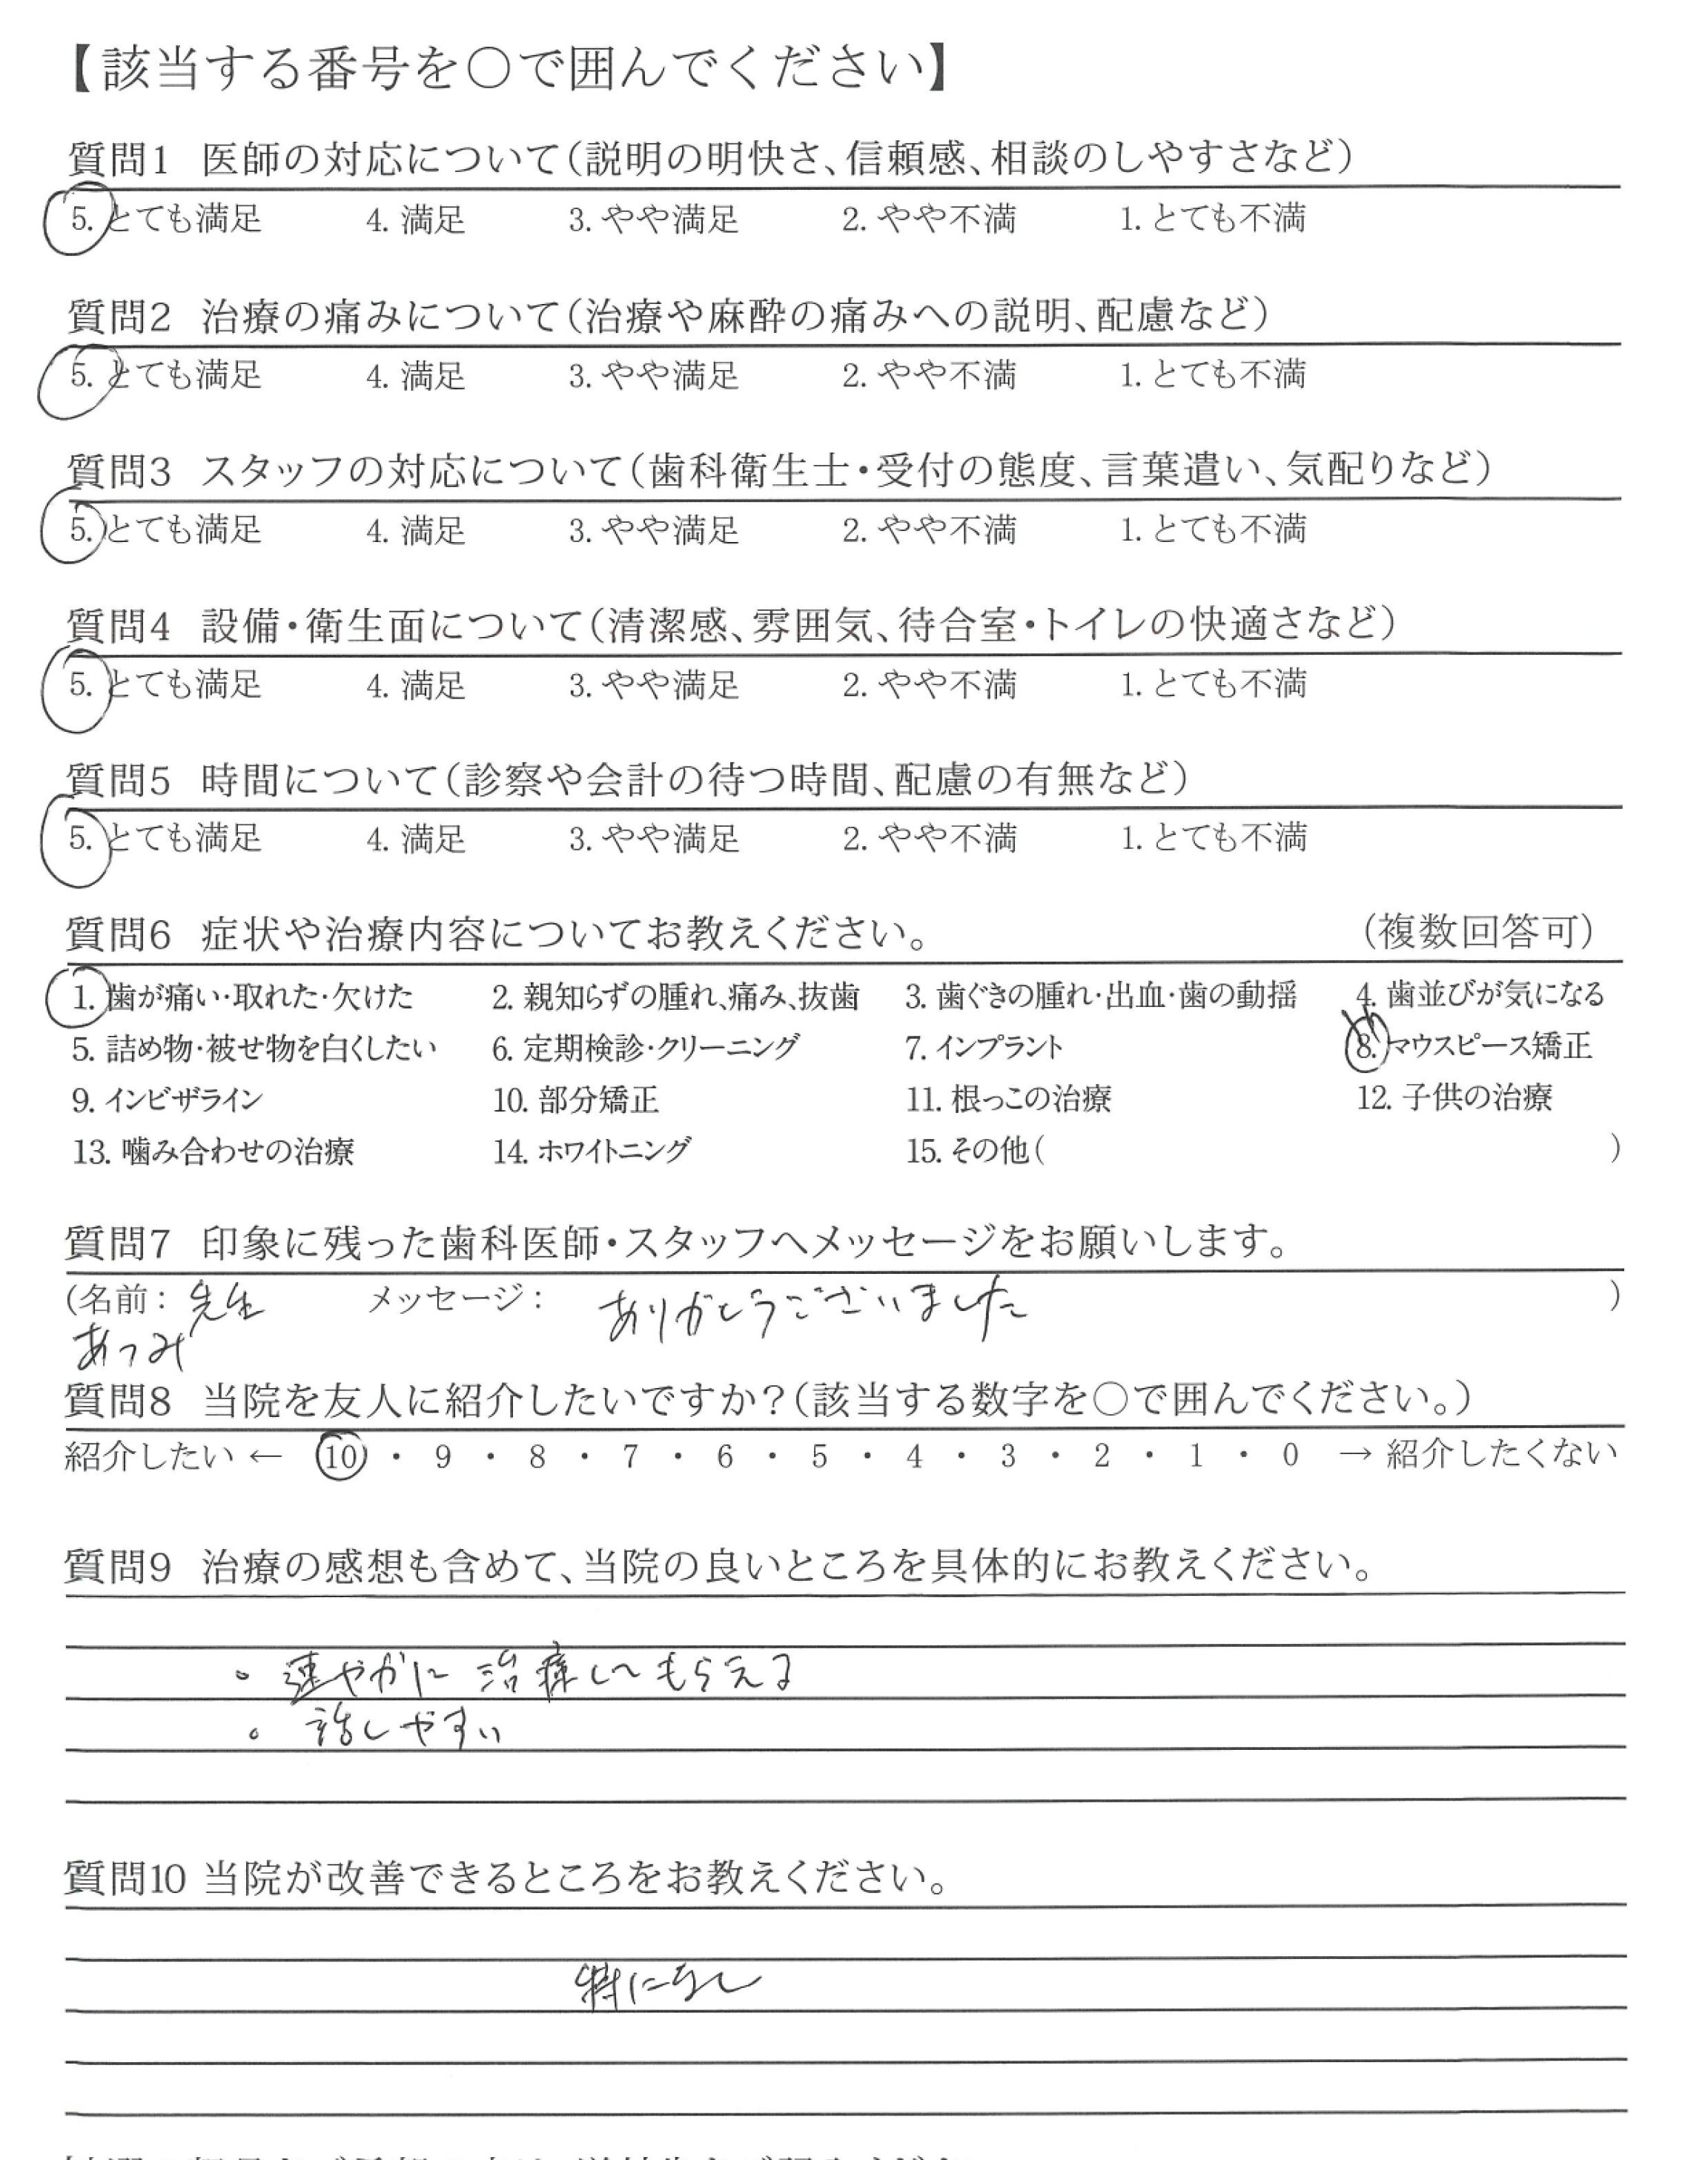 【該当する番号を〇で囲んでください】
質問1 医師の対応について(説明の明快さ、信頼感、相談のしやすさなど)
5. とても満足 4. 満足 3. やや満足 2. やや不満 1. とても不満
質問2 治療の痛みについて(治療や麻酔の痛みへの説明、配慮など)
5. とても満足 4. 満足 3. やや満足 2. やや不満 1. とても不満
質問3 スタッフの対応について(歯科衛生士・受付の態度、言葉遣い、気配りなど)
5. とても満足 4. 満足 3. やや満足 2. やや不満 1. とても不満
質問4 設備・衛生面について(清潔感、雰囲気、待合室・トイレの快適さなど)
5. とても満足 4. 満足 3. やや満足 2. やや不満 1. とても不満
質問5 時間について(診察や会計の待つ時間、配慮の有無など)
5. とても満足 4. 満足 3. やや満足 2. やや不満 1. とても不満
質問6 症状や治療内容についてお教えください。 (複数回答可)
1. 歯が痛い・取れた・欠けた 2. 親知らずの腫れ、痛み、抜歯 3. 歯ぐきの腫れ・出血・歯の動揺 4. 歯並びが気になる
5. 詰め物・被せ物を白くしたい 6. 定期検診・クリーニング 7. インプラント 8. マウスピース矯正
9. インビザライン 10. 部分矯正 11. 根っこの治療 12. 子供の治療
13. 噛み合わせの治療 14. ホワイトニング 15. その他( )
質問7 印象に残った歯科医師・スタッフへメッセージをお願いします。
(名前: 先生 メッセージ: ありがとうございました )
あつみ
質問8 当院を友人に紹介したいですか?(該当する数字を〇で囲んでください。)
紹介したい ← 10 ・ 9 ・ 8 ・ 7 ・ 6 ・ 5 ・ 4 ・ 3 ・ 2 ・ 1 ・ 0 → 紹介したくない
質問9 治療の感想も含めて、当院の良いところを具体的にお教えください。
。速やかに治療してもらえる
。話しやすい
質問10 当院が改善できるところをお教えください。
特になし